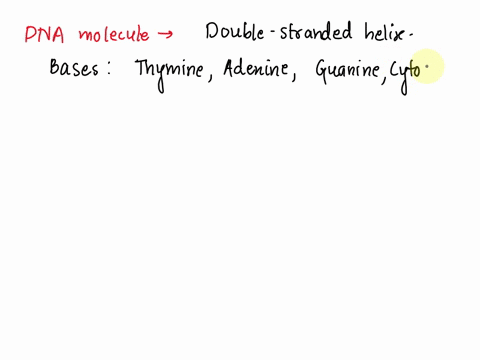 DNA molecule → Double-stranded helix.
Bases: Thymine, Adenine, Guanine, Cyto